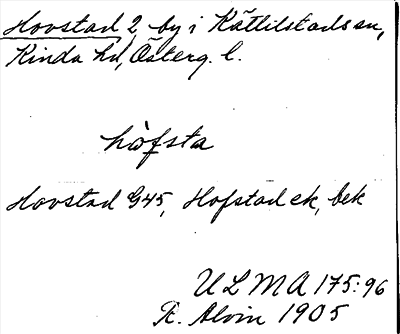 Hovstad 2, by i Kättilstads sn,
Kinda hd, Österg. l.
hòfsta
Hovstad G45, Hofstad ek, bek
ULMA 175:96
R. Alvin 1905